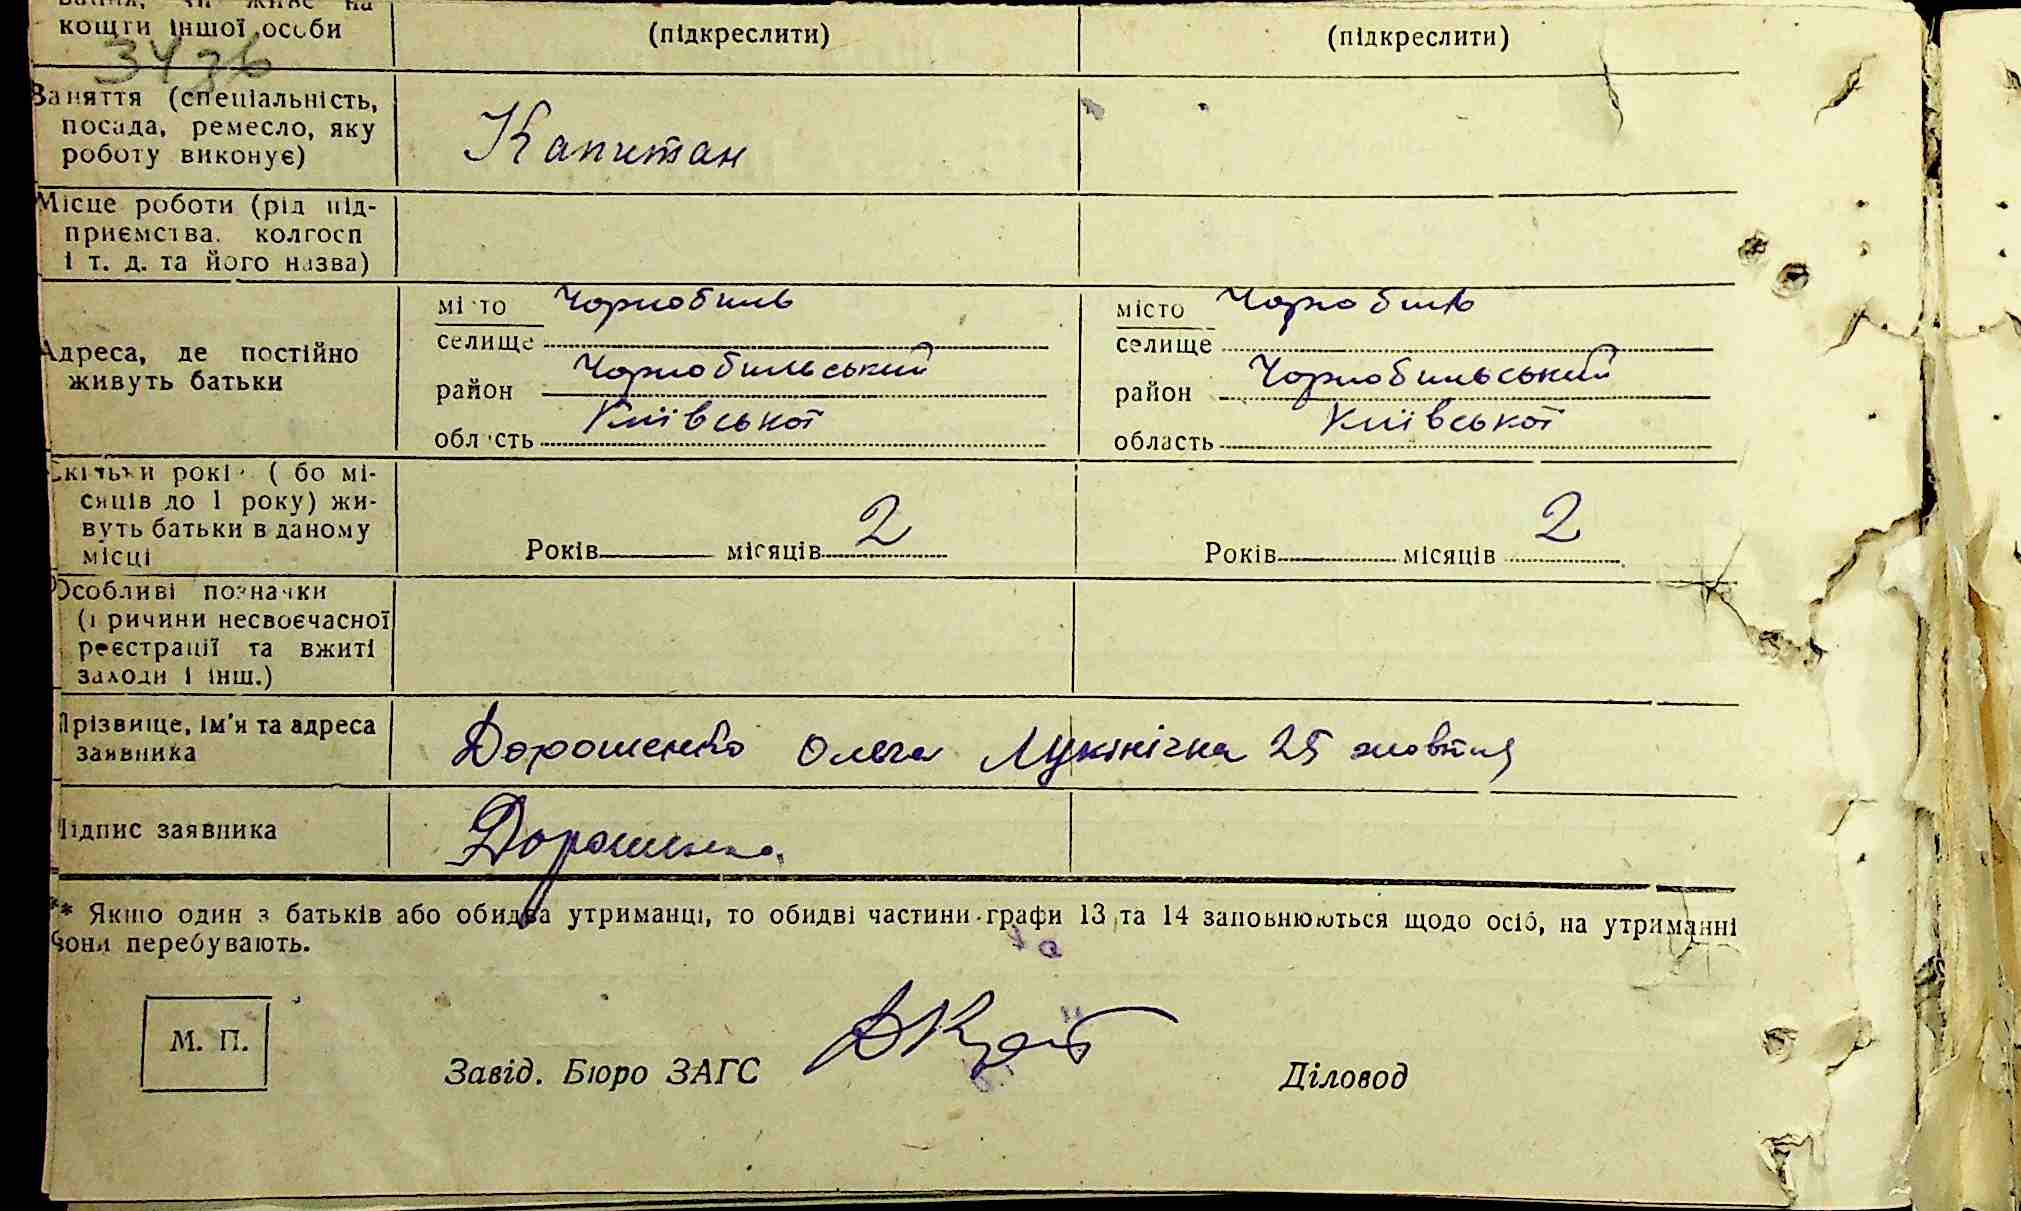 кошти іншої особи
(підкреслити) (підкреслити)
Заняття (спеціальність,
посада, ремесло, яку
роботу виконує)
Капитан
Місце роботи (рід під-
приємства, колгосп
і т. д. та його назва)
Адреса, де постійно
живуть батьки
місто Чорнобиль
селище
район Чорнобильський
область Київської
місто Чорнобиль
селище
район Чорнобильський
область Київської
Скільки років ( бо мі-
сяців до 1 року) жи-
вуть батьки в даному
місці
Років місяців 2
Років місяців 2
Особливі позначки
(причини несвоєчасної
реєстрації та вжиті
заходи і інш.)
Прізвище, ім'я та адреса
заявника
Дорошенко Ольга Лукінічна 25 жовтня
Підпис заявника
Дорошенко
** Якщо один з батьків або обидва утриманці, то обидві частини графи 13 та 14 заповнюються щодо осіб, на утриманні
вони перебувають.
М. П.
Завід. Бюро ЗАГС
Діловод